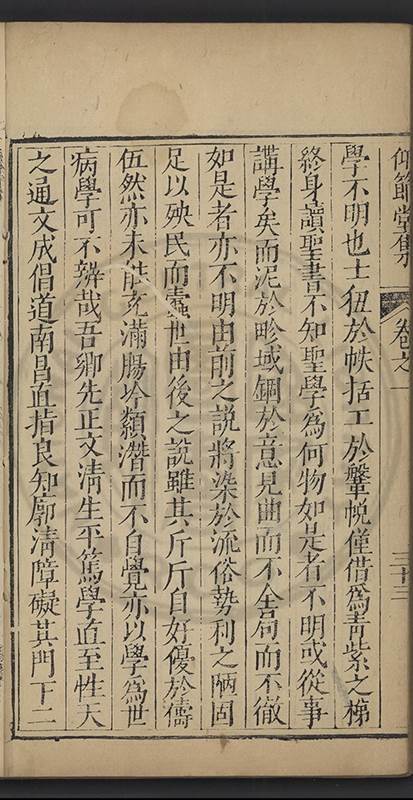 仰節堂集 卷之一 三十三
學不明也士狃於帙括工於鞶帨僅借爲青紫之梯
終身讀聖書不知聖學爲何物如是者不明或從事
講學矣而泥於畛域錮於意見曲而不舍局而不徹
如是者亦不明由前之說將染於流俗勢利之陋固
足以殃民而蠹世由後之說雖其斤斤自好優於儔
伍然亦未能充滿腸吟纇潛而不自覺亦以學爲世
病學可不辨哉吾鄉先正文清生平篤學直至性天
之通文成倡道南昌直指良知廓清障礙其門下二